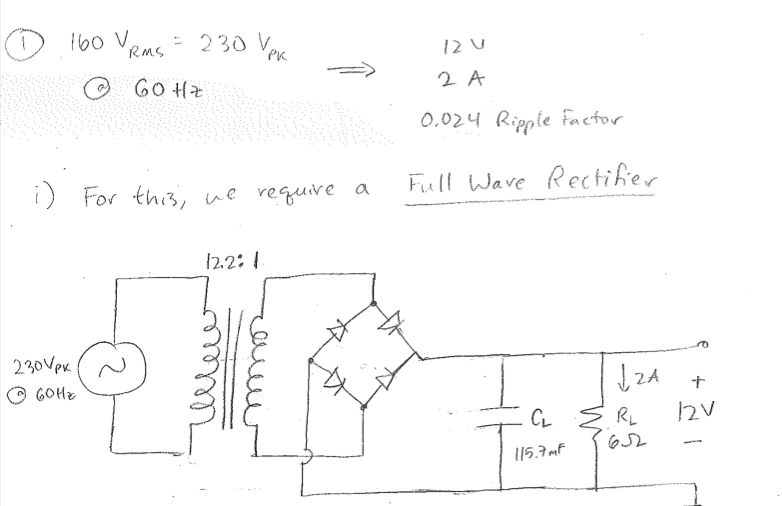 ① 160 V RMS = 230 V PK ⇒ 12 V
@ 60 Hz 2 A
0.024 Ripple Factor
i) For this, we require a Full Wave Rectifier
12.2:1
230VPK
@ 60Hz
↓2A +
CL RL 12V
115.7mF 6Ω −